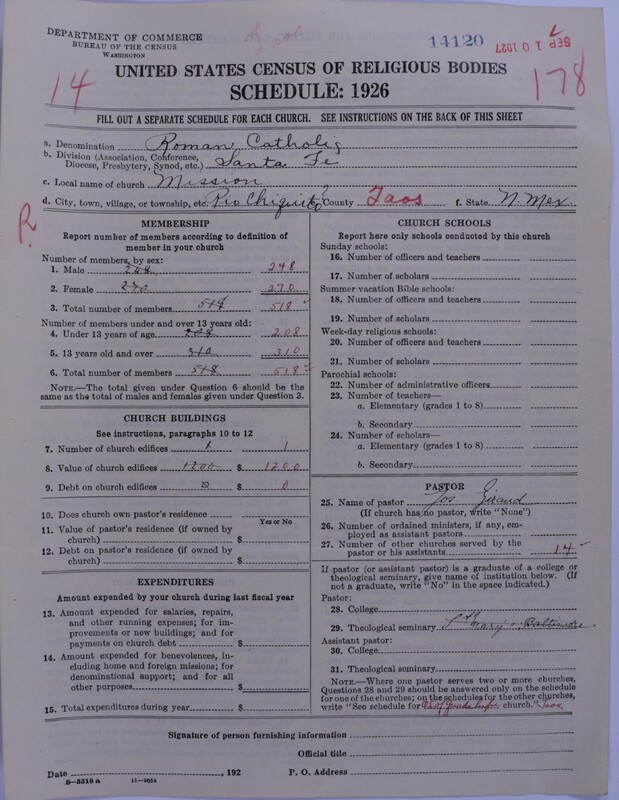 DEPARTMENT OF COMMERCE
BUREAU OF THE CENSUS
WASHINGTON
Taos
14120
SEP 10 1927
14
178
UNITED STATES CENSUS OF RELIGIOUS BODIES
SCHEDULE: 1926
FILL OUT A SEPARATE SCHEDULE FOR EACH CHURCH. SEE INSTRUCTIONS ON THE BACK OF THIS SHEET
a. Denomination Roman Catholic
b. Division (Association, Conference, Diocese, Presbytery, Synod, etc.) Santa Fe
c. Local name of church Mission
d. City, town, village, or township, etc. Rio Chiquito ? County Taos f. State N. Mex.
R
MEMBERSHIP
Report number of members according to definition of
member in your church
Number of members, by sex:
1. Male 248 248
2. Female 270 270
3. Total number of members 518 518
Number of members under and over 13 years old:
4. Under 13 years of age 208 208
5. 13 years old and over 310 310
6. Total number of members 518 518
NOTE.—The total given under Question 6 should be the
same as the total of males and females given under Question 3.
CHURCH BUILDINGS
See instructions, paragraphs 10 to 12
7. Number of church edifices 1 1
8. Value of church edifices 1200 $ 1200
9. Debt on church edifices 0 $ 0
10. Does church own pastor's residence
Yes or No
11. Value of pastor's residence (if owned by
church) $
12. Debt on pastor's residence (if owned by
church) $
EXPENDITURES
Amount expended by your church during last fiscal year
13. Amount expended for salaries, repairs,
and other running expenses; for im-
provements or new buildings; and for
payments on church debt $
14. Amount expended for benevolences, in-
cluding home and foreign missions; for
denominational support; and for all
other purposes $
15. Total expenditures during year $
CHURCH SCHOOLS
Report here only schools conducted by this church
Sunday schools:
16. Number of officers and teachers
17. Number of scholars
Summer vacation Bible schools:
18. Number of officers and teachers
19. Number of scholars
Week-day religious schools:
20. Number of officers and teachers
21. Number of scholars
Parochial schools:
22. Number of administrative officers
23. Number of teachers—
a. Elementary (grades 1 to 8)
b. Secondary
24. Number of scholars—
a. Elementary (grades 1 to 8)
b. Secondary
PASTOR
25. Name of pastor Jos Giraud
(If church has no pastor, write "None")
26. Number of ordained ministers, if any, em-
ployed as assistant pastors
27. Number of other churches served by the
pastor or his assistants 14
If pastor (or assistant pastor) is a graduate of a college or
theological seminary, give name of institution below. (If
not a graduate, write "No" in the space indicated.)
Pastor:
28. College
29. Theological seminary St Mary's, Baltimore
Assistant pastor:
30. College
31. Theological seminary
NOTE.—Where one pastor serves two or more churches,
Questions 28 and 29 should be answered only on the schedule
for one of the churches; on the schedules for the other churches,
write "See schedule for Ch of Guadalupe church." Taos
Signature of person furnishing information
Official title
Date , 192 P. O. Address
8—5519 a 11—9054